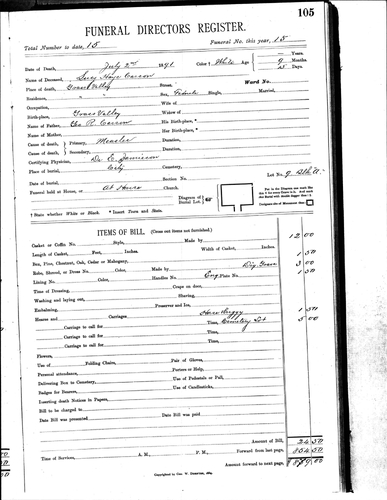 105
FUNERAL DIRECTORS REGISTER.
Total Number to date, 15 Funeral No. this year, 15
Date of Death, July 2nd 1891 Color † White Age — Years 9 Months 25 Days
Name of Deceased,
Place of death, Grass Valley Street, Ward No.
Residence, " Sex, Female Single, Married,
Occupation, Wife of
Birthplace, Grass Valley Widow of
Name of Father, Geo R. His Birth-place, *
Name of Mother, Her Birth-place, *
Cause of death, Primary, Measles Duration,
Cause of death, Secondary, Duration,
Certifying Physician, Dr E. Jamieson
Place of burial, City Cemetery,
Date of burial, Section No. Lot No. 9
Funeral held at House, or At House Church.
Diagram of Burial Lot.
† State whether White or Black. * Insert Town and State.
ITEMS OF BILL. (Cross out items not furnished.)
Casket or Coffin No. Style, Made by 12.00
Length of Casket, Feet, Inches. Width of Casket, Inches.
Box, Pine, Chestnut, Oak, Cedar or Mahogany, 1.50
Robe, Shroud, or Dress No. Color, Made by Dig Grave 3.00
Lining No. Color, Handles No. Eng. Plate No. 1.50
Time of Dressing, Crape on door,
Washing and laying out, Shaving,
Embalming, Preserver and Ice,
Hearse and Carriages, Buggy 1.50
Carriage to call for Time, Cemetery Lot 5.00
Carriage to call for Time,
Carriage to call for Time,
Carriage to call for Time,
Flowers,
Use of Folding Chairs, Pair of Gloves,
Personal attendance, Porters or Help,
Delivering Box to Cemetery, Use of Pedestals or Pall,
Badges for Bearers, Use of Candlesticks,
Inserting death Notices in Papers,
Bill to be charged to
Date Bill was presented Date Bill was paid
Amount of Bill, 24.50
Time of Services, A. M., P. M., Forward from last page,
Amount forward to next page,